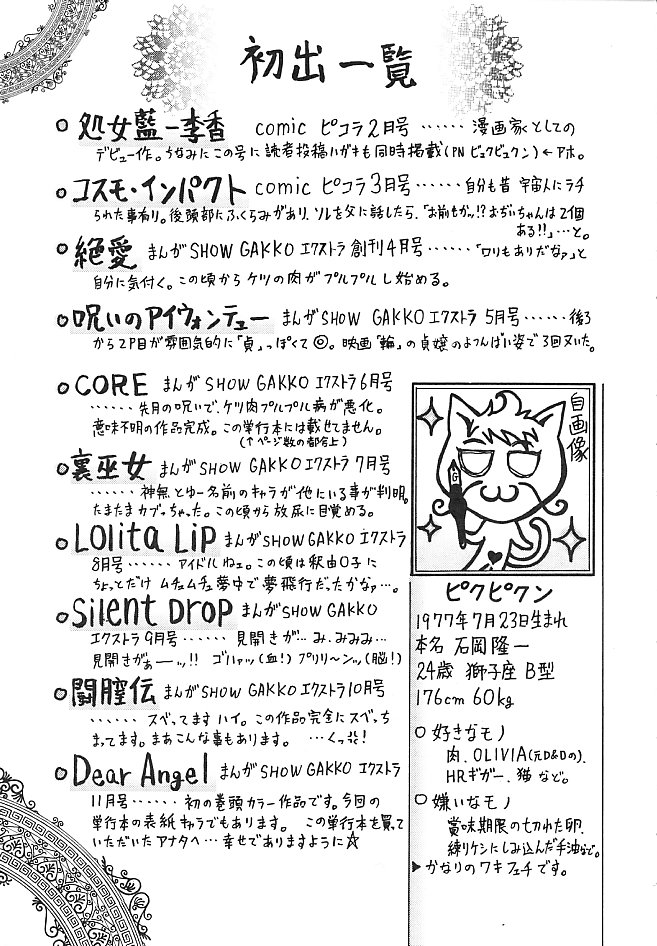 初出一覧
○ 処女藍-李香 comic ピコラ2月号 ‥‥‥ 漫画家としての
デビュー作。ちなみにこの号に読者投稿ハガキも同時掲載(PN ピュクピュクン)←アホ。
○ コスモ・インパクト comic ピコラ3月号 ‥‥‥自分も昔 宇宙人にラチ
られた事有り。後頭部にふくらみがあり、ソレを父に話したら、「お前もかッ!?おぢいちゃんは2個
ある!!」…と。
○ 絶愛 まんがSHOW GAKKO エクストラ 創刊4月号 ‥‥‥「ロリもありだなァ」と
自分に気付く。この頃から ケツの肉がプルプルし始める。
○ 呪いのアイウォンチュー まんがSHOW GAKKO エクストラ 5月号 ‥‥‥後ろ
から2P目が雰囲気的に「貞」っぽくて◎。映画「輪」の貞嬢のよつんばい姿で3回ヌいた。
○ CORE まんがSHOW GAKKO エクストラ6月号
‥‥‥ 先月の呪いで、ケツ肉プルプル病が悪化。
意味不明の作品完成。この単行本には載せてません。
(↑ページ数の都合上)
○ 裏巫女 まんがSHOW GAKKO エクストラ 7月号
‥‥‥ 神無とゆー名前のキャラが他にいる事が判明。
たまたまカブっちゃった。この頃から放尿に目覚める。
○ Lolita Lip まんがSHOW GAKKO エクストラ
8月号 ‥‥‥ アイドルねェ。この頃は釈由○子に
ちょっとだけ ムチュムチュ夢中で夢飛行だったかなァ…。
○ Silent Drop まんがSHOW GAKKO
エクストラ9月号 ‥‥‥ 見開きが…み、みみみ…
見開きがぁーーッ!! ゴハァッ(血!)プリリ〜ンッ(脳!)
○ 闘膣伝 まんがSHOW GAKKO エクストラ10月号
‥‥‥ スベってます ハイ。この作品完全にスベっち
まってます。まあこんな事もあります。 …くっ!
○ Dear Angel まんがSHOW GAKKO エクストラ
11月号 ‥‥‥ 初の巻頭カラー作品です。今回の
単行本の表紙キャラでもあります。 この単行本を買って
いただいたアナタへ… 幸せでありますように☆
自画像
G
ピクピクン
1977年7月23日生まれ
本名 石岡隆一
24歳 獅子座 B型
176cm 60kg
○ 好きなモノ
肉、OLIVIA(元D&Dの)、
HRギガー、猫 など。
○ 嫌いなモノ
賞味期限の切れた卵、
練りケシにしみ込んだ手油など。
▶かなりのワキフェチです。